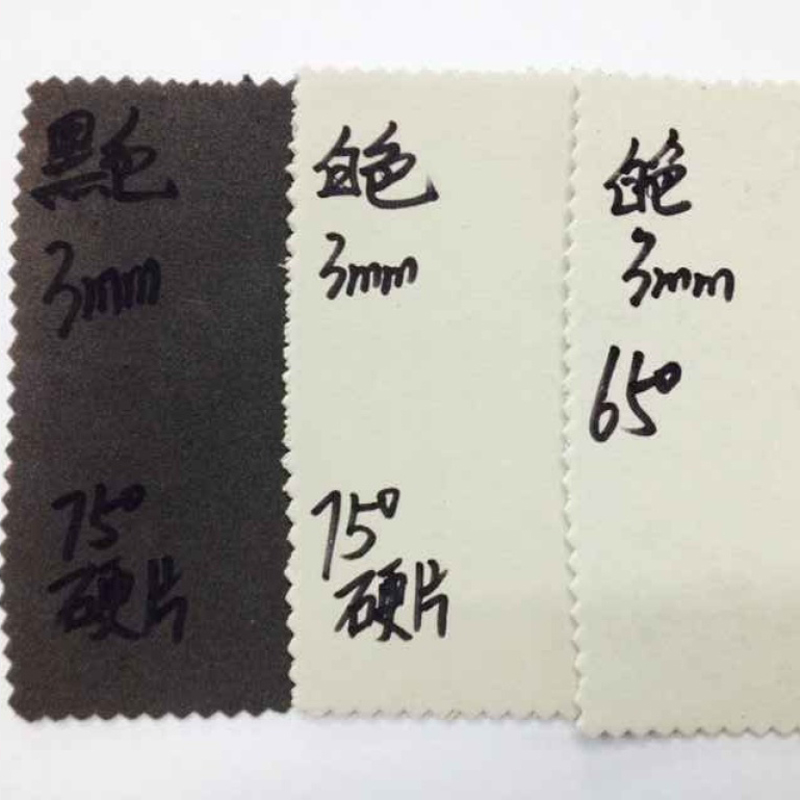 黑色
3mm
75°
硬片
白色
3mm
75°
硬片
白色
3mm
65°